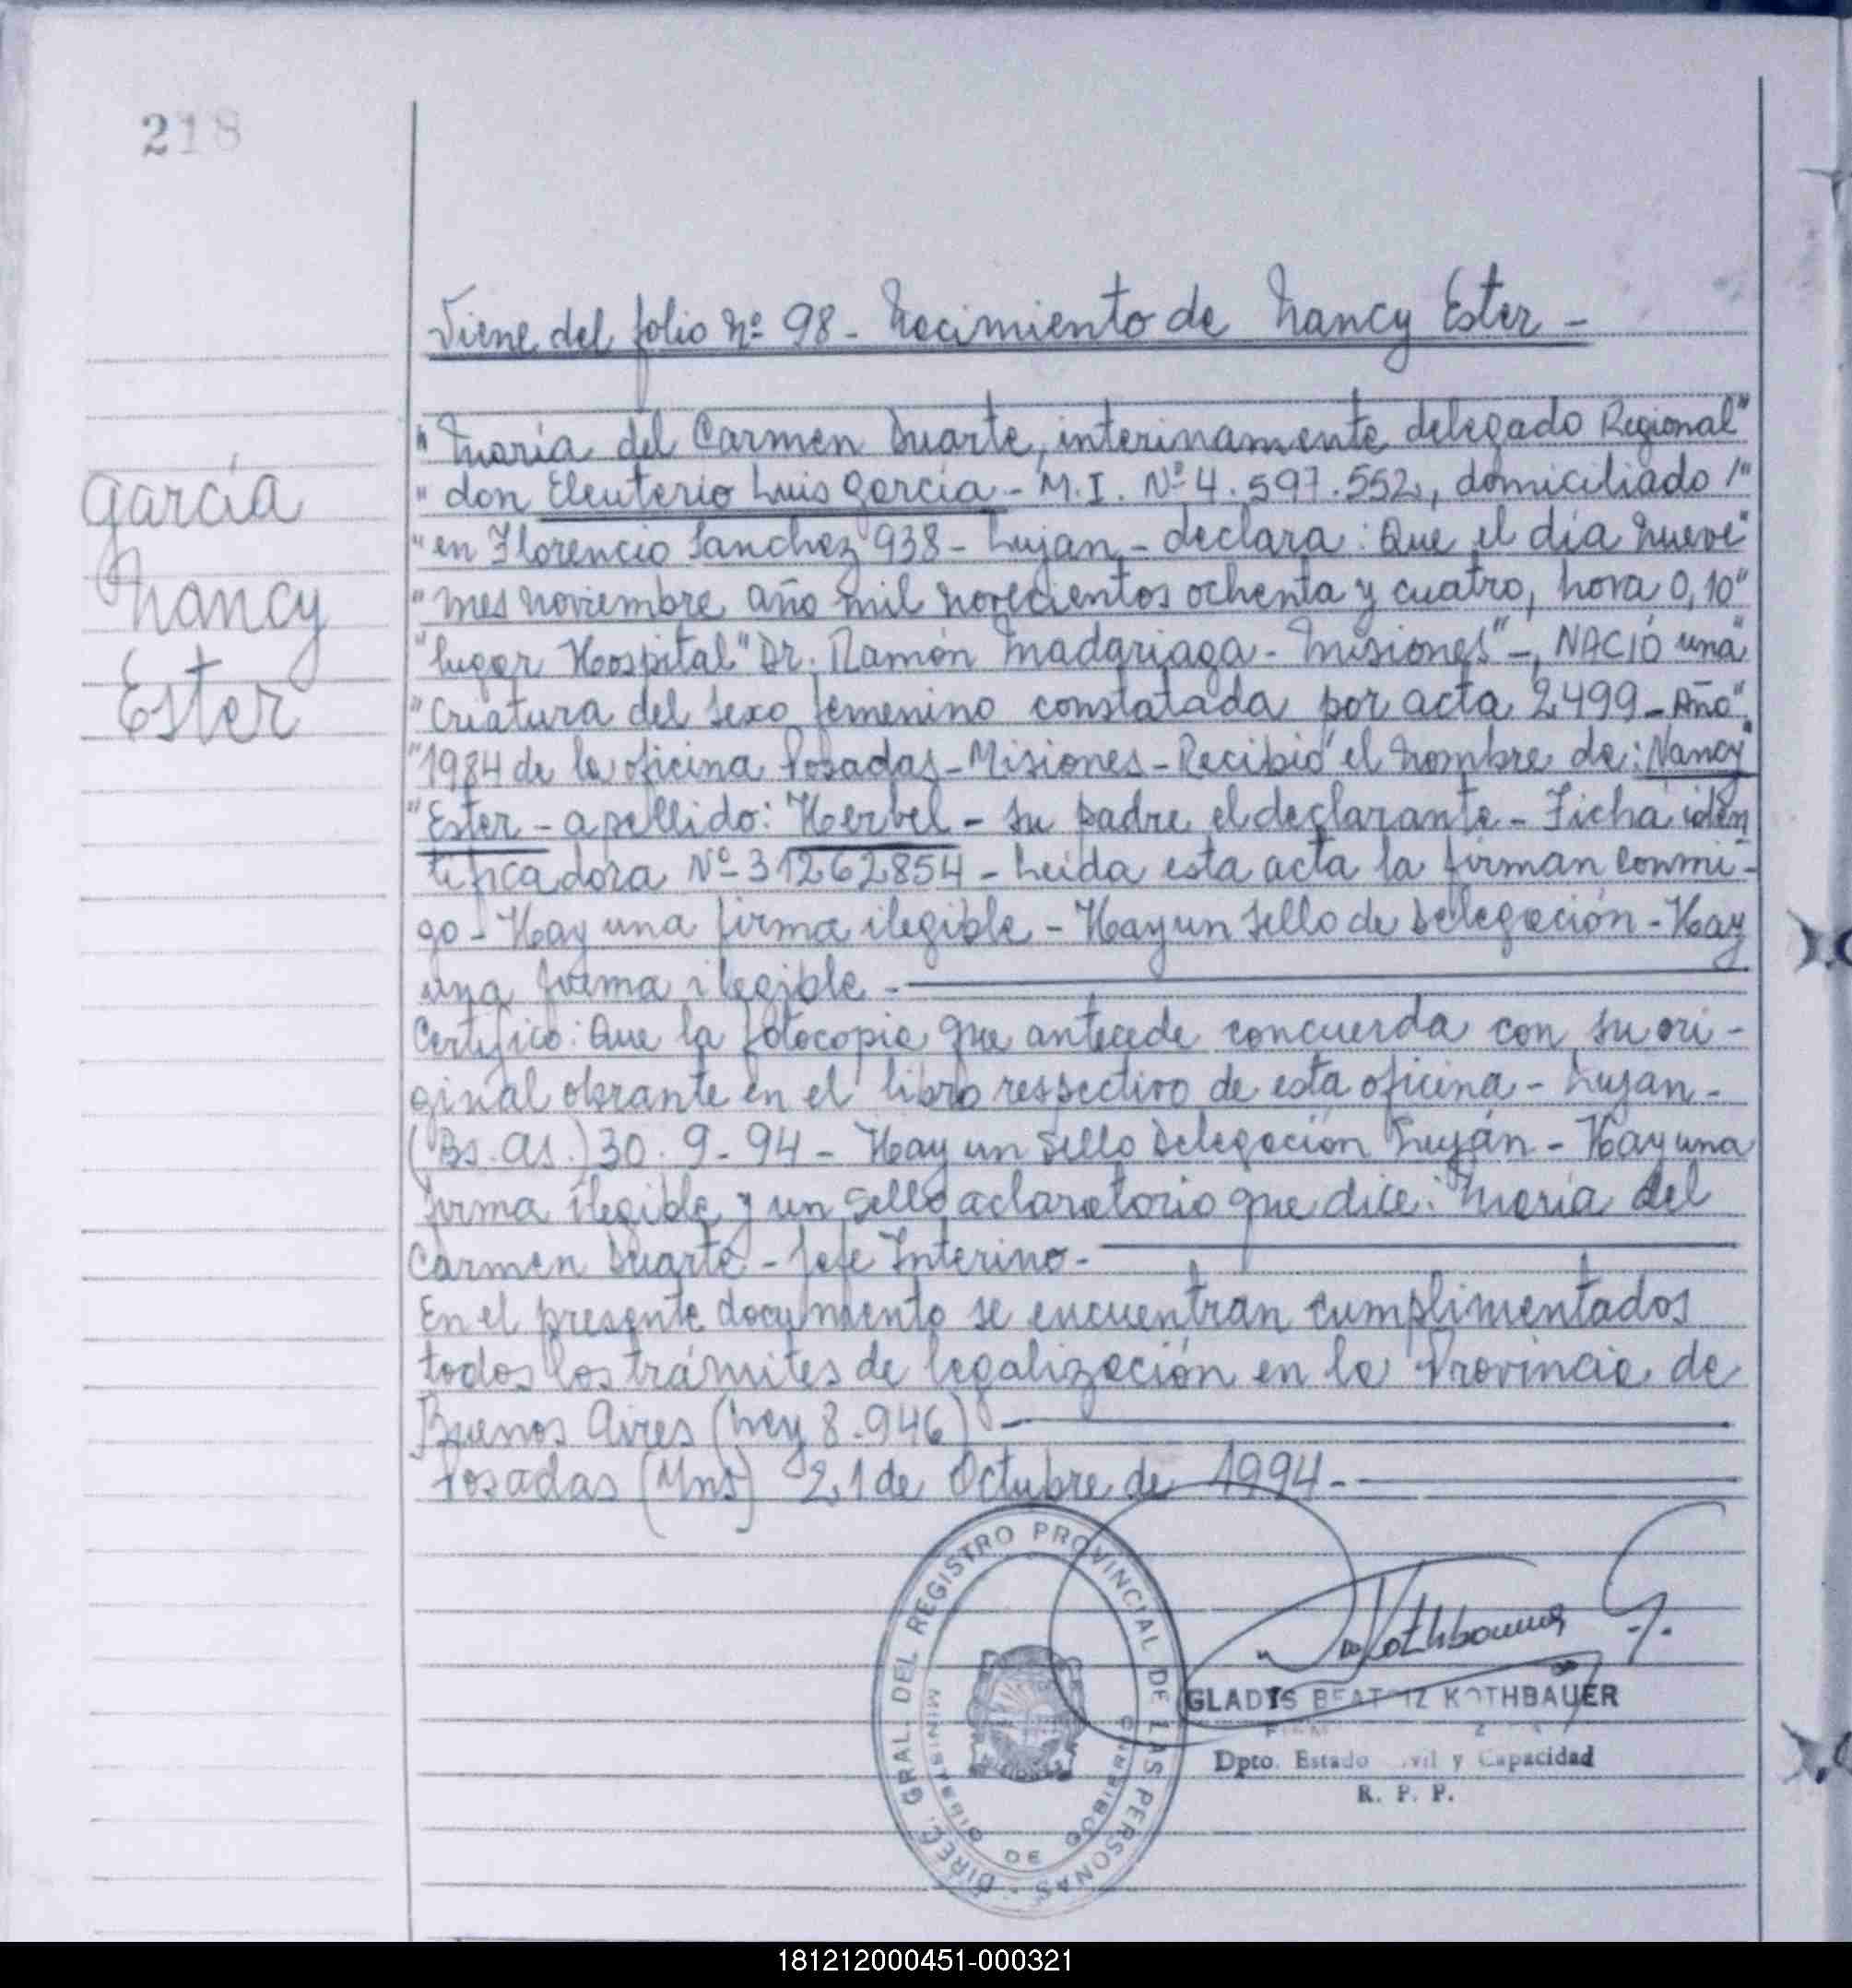 218
Viene del folio Nº 98 - Nacimiento de Nancy Ester -
García
Nancy
Ester
"María del Carmen Duarte, interinamente delegado Regional"
"don Eleuterio Luis García - M.I. Nº 4.597.552, domiciliado /"
"en Florencio Sanchez 938 - Lujan - declara: Que el día nueve"
"mes noviembre año mil novecientos ochenta y cuatro, hora 0,10"
"lugar Hospital "Dr. Ramón Madariaga - Misiones" -, NACIÓ una"
"Criatura del sexo femenino constatada por acta 2499 - Año"
"1984 de la oficina Posadas - Misiones - Recibió el nombre de: Nancy"
"Ester - apellido: Herbel - su padre el declarante - Ficha iden
tificadora Nº 31262854 - Leida esta acta la firman conmi-
go - Hay una firma ilegible - Hay un sello de Delegación - Hay
una firma ilegible -
Certifico: Que la fotocopia que antecede concuerda con su ori-
ginal obrante en el libro respectivo de esta oficina - Lujan -
(Bs. As.) 30.9-94 - Hay un sello Delegación Luján - Hay una
firma ilegible y un sello aclaratorio que dice: María del
Carmen Duarte - Jefe Interino -
En el presente documento se encuentran cumplimentados
todos los trámites de legalización en la Provincia de
Buenos Aires (Ley 8.946)
Posadas (Mns) 21 de Octubre de 1994 -
DIREC. GRAL. DEL REGISTRO PROVINCIAL DE LAS PERSONAS
MINISTERIO DE GOBIERNO
GLADYS BEATRIZ KOTHBAUER
Dpto. Estado Civil y Capacidad
R. P. P.
181212000451-000321